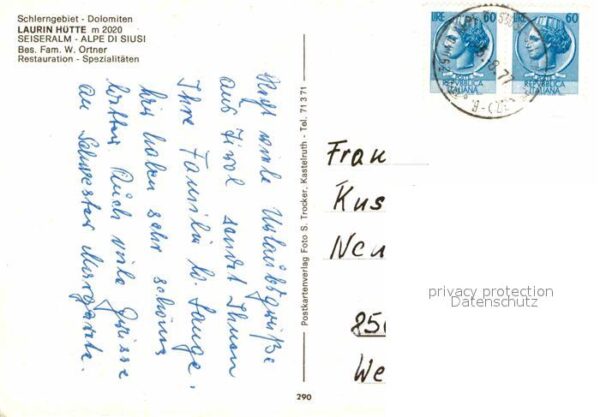 Schlerngebiet - Dolomiten
LAURIN HÜTTE m 2020
SEISERALM - ALPE DI SIUSI
Bes. Fam. W. Ortner
Restauration - Spezialitäten
LIRE 60
60
REPUBBLICA
ITALIANA
REPUBBLICA
ITALIANA
Recht viele Urlaubsgrüße
aus Tirol sendet Ihnen
Ihre Familie W. Lange.
Wir haben sehr schönes
Bitte Auch viele Grüsse
an Schwester Margarete.
Postkartenverlag Foto S. Trocker, Kastelruth - Tel. 71371
290
Frau
Kus
Neu
850
We
privacy protection
Datenschutz